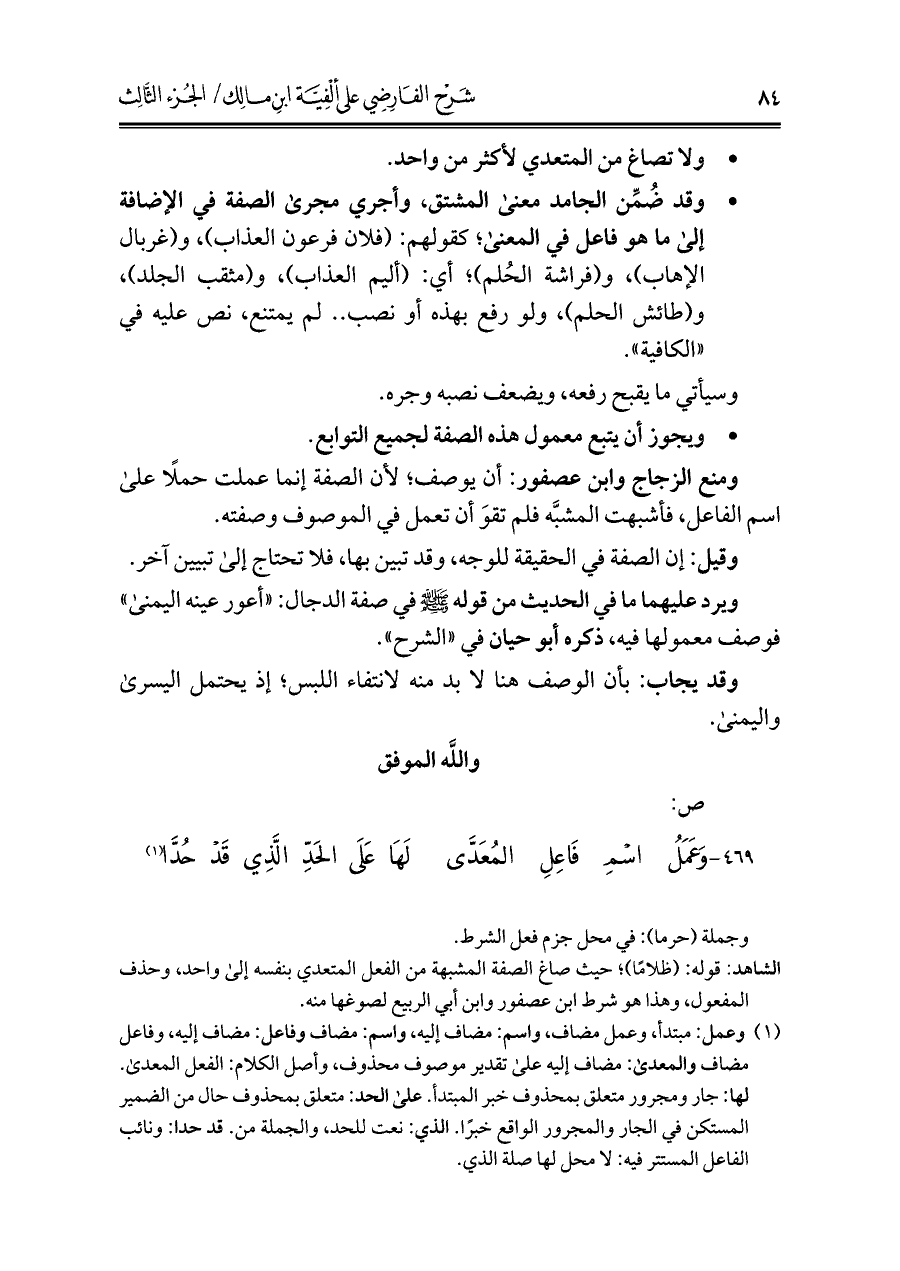 ٨٤ شَرْح الفَارِضِي على ألْفِيَّة ابنِ مَالِك/ الجُزء الثَّالِث
• ولا تصاغ من المتعدي لأكثر من واحد.
• وقد ضُمِّن الجامد معنىٰ المشتق، وأجري مجرىٰ الصفة في الإضافة
إلىٰ ما هو فاعل في المعنىٰ؛ كقولهم: (فلان فرعون العذاب)، و(غربال
الإهاب)، و(فراشة الحُلم)؛ أي: (أليم العذاب)، و(مثقب الجلد)،
و(طائش الحلم)، ولو رفع بهذه أو نصب.. لم يمتنع، نص عليه في
«الكافية».
وسيأتي ما يقبح رفعه، ويضعف نصبه وجره.
• ويجوز أن يتبع معمول هذه الصفة لجميع التوابع.
ومنع الزجاج وابن عصفور: أن يوصف؛ لأن الصفة إنما عملت حملًا علىٰ
اسم الفاعل، فأشبهت المشبَّه فلم تقوَ أن تعمل في الموصوف وصفته.
وقيل: إن الصفة في الحقيقة للوجه، وقد تبين بها، فلا تحتاج إلىٰ تبيين آخر.
ويرد عليهما ما في الحديث من قوله ﷺ في صفة الدجال: «أعور عينه اليمنىٰ»
فوصف معمولها فيه، ذكره أبو حيان في «الشرح».
وقد يجاب: بأن الوصف هنا لا بد منه لانتفاء اللبس؛ إذ يحتمل اليسرىٰ
واليمنىٰ.
واللَّه الموفق
ص:
٤٦٩- وَعَمَلُ اسْمِ فَاعِلِ المُعَدَّى لَهَا عَلَى الحَدِّ الَّذِي قَدْ حُدَّا(١)
وجملة (حرما): في محل جزم فعل الشرط.
الشاهد: قوله: (ظلامًا)؛ حيث صاغ الصفة المشبهة من الفعل المتعدي بنفسه إلىٰ واحد، وحذف
المفعول، وهذا هو شرط ابن عصفور وابن أبي الربيع لصوغها منه.
(١) وعمل: مبتدأ، وعمل مضاف، واسم: مضاف إليه، واسم: مضاف وفاعل: مضاف إليه، وفاعل
مضاف والمعدىٰ: مضاف إليه علىٰ تقدير موصوف محذوف، وأصل الكلام: الفعل المعدىٰ.
لها: جار ومجرور متعلق بمحذوف خبر المبتدأ. علىٰ الحد: متعلق بمحذوف حال من الضمير
المستكن في الجار والمجرور الواقع خبرًا. الذي: نعت للحد، والجملة من. قد حدا: ونائب
الفاعل المستتر فيه: لا محل لها صلة الذي.